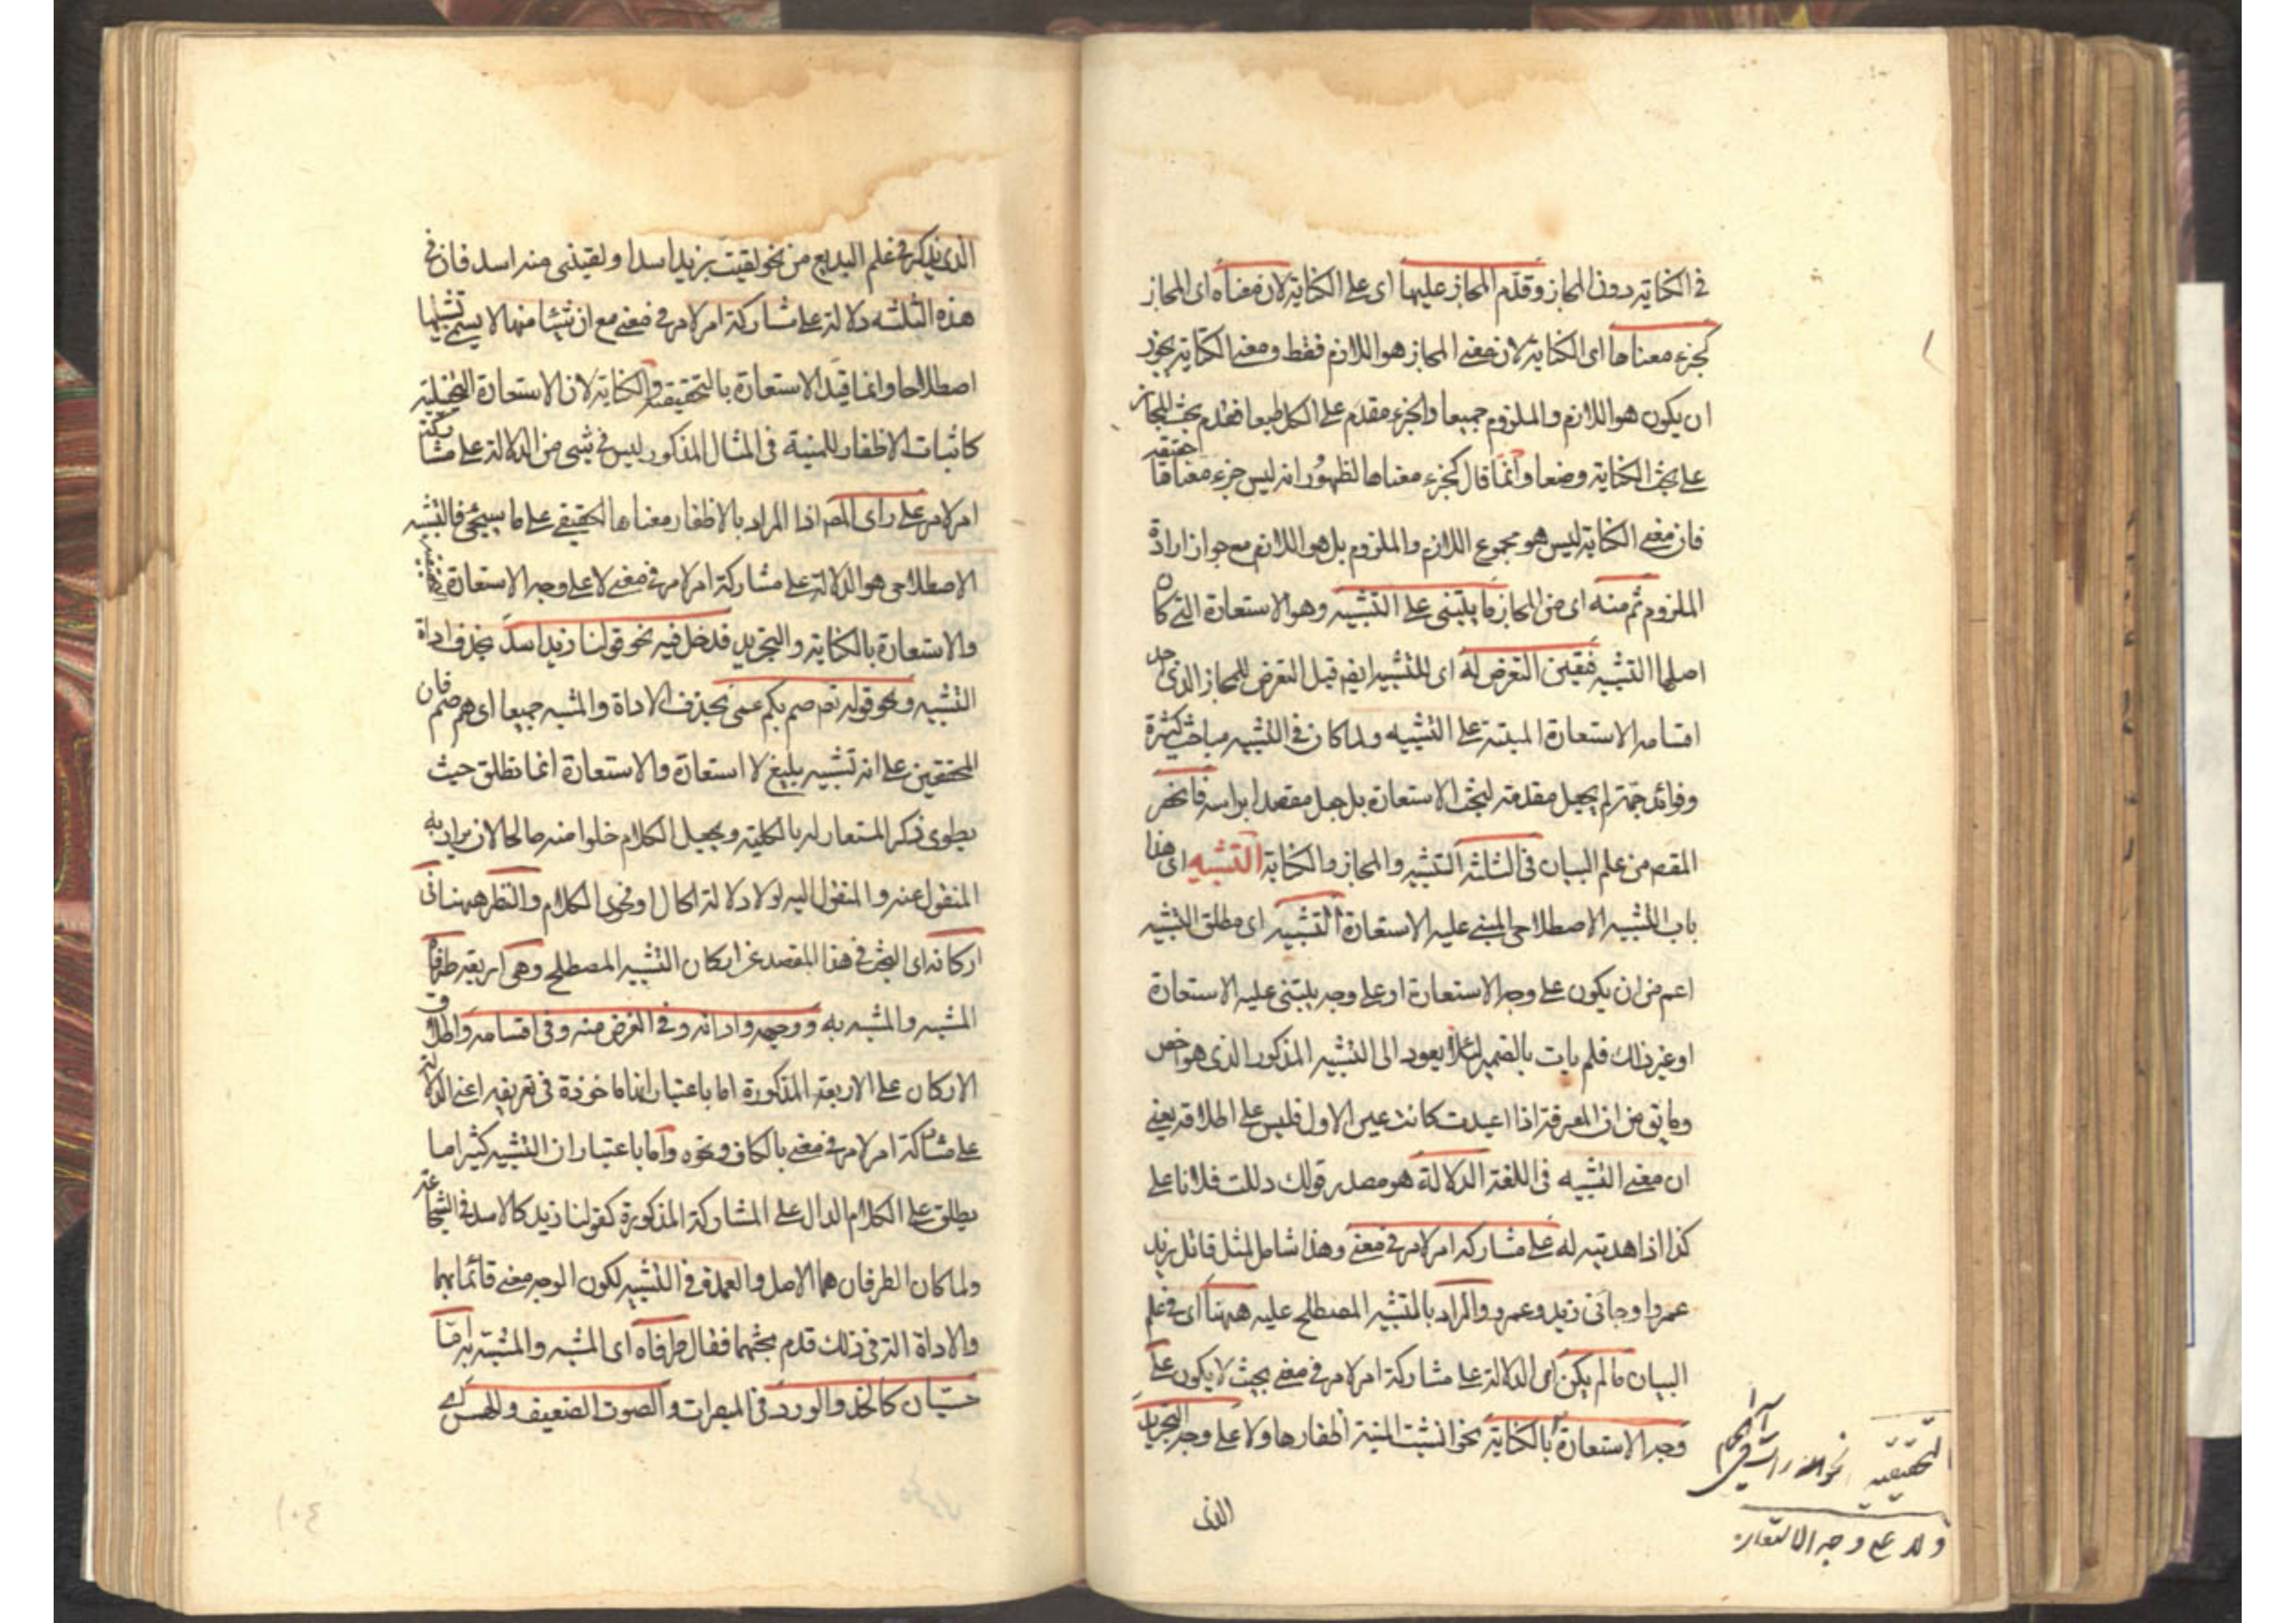 في الكناية دون المجاز وقدّم المجاز عليها اى على الكناية لان معناه اى المجاز
كجزء معناها اى الكناية لان معنى المجاز هو اللازم فقط ومعنى الكناية يجوز
ان يكون هو اللازم والملزوم جميعا والجزء مقدم على الكل طبعا فقدم بحث المجاز
على بحث الكناية وضعا وانما قال كجزء معناها لظهور انه ليس جزء معناها حقيقة
فان معنى الكناية ليس هو مجموع اللازم والملزوم بل هو اللازم مع جواز ارادة
الملزوم ثم منه اى من المجاز ما يبتنى على التشبيه وهو الاستعارة التى كان
اصلها التشبيه فتعين التعرض له اى للتشبيه ايضا قبل التعرض للمجاز الذى احد
اقسامه الاستعارة المبتنية على التشبيه ولما كان فى التشبيه مباحث كثيرة
وفوائد جمة لم يجعل مقدمة لبحث الاستعارة بل جعل مقصدا براسه فانحصر
المقصم من علم البيان فى الثلثة التشبيه والمجاز والكناية التشبيه اى هذا
باب التشبيه الاصطلاحى المبنى عليه الاستعارة التشبيه اى مطلق التشبيه
اعم من ان يكون على وجه الاستعارة او على وجه يبتنى عليه الاستعارة
او غير ذلك فلم يات بالضمير لئلا يعود الى التشبيه المذكور الذى هو اخص
وما يق من ان المعرفة اذا اعيدت كانت عين الاول فليس على اطلاقه يعنى
ان معنى التشبيه فى اللغة الدلالة هو مصدر قولك دللت فلانا على
كذا اذا هديته له على مشاركة امر لامر فى معنى وهذا شامل لمثل قاتل زيد
عمروا وجائنى زيد وعمرو والمراد بالتشبيه المصطلح عليه ههنا اى فى علم
البيان ما لم يكن اى الدلالة على مشاركة امر لامر فى معنى بحيث لا يكون على
وجه الاستعارة بالكناية نحو انشبت المنية اظفارها ولا على وجه التجريد
التحقيقية نحو رايت اسدا فى الحمام
ولا على وجه الاستعارة
الذى
الذى يذكر فى علم البديع من نحو لقيت بزيد اسدا ولقينى منه اسد فان فى
هذه الثلثة دلالة على مشاركة امر لامر فى معنى مع ان شيئا منها لا يسمى تشبيها
اصطلاحا وانما قيد الاستعارة بالتحقيقة والكناية لان الاستعارة التخيلية
كاثبات الاظفار للمنية فى المثال المذكور ليس فى شئ من الدلالة على مشاركة
امر لامر على راى المصم اذا المراد بالاظفار معناها الحقيقى على ما سيجئ فالتشبيه
الاصطلاحى هو الدلالة على مشاركة امر لامر فى معنى لا على وجه الاستعارة التحقيقية
والاستعارة بالكناية والتجريد فدخل فيه نحو قولنا زيد اسد بحذف اداة
التشبيه ونحو قوله تعم صم بكم عمى بحذف الاداة والمشبه جميعا اى هم صم فان
المحققين على انه تشبيه بليغ لا استعارة والاستعارة انما تطلق حيث
يطوى ذكر المستعار له بالكلية ويجعل الكلام خلوا منه صالحا لان يراد به
المنقول عنه والمنقول اليه لولا دلالة الحال او فحوى الكلام والنظر ههنا فى
اركانه اى البحث فى هذا المقصد عن اركان التشبيه المصطلح وهى اربعة طرفاه
المشبه والمشبه به ووجهه واداته وفى الغرض منه وفى اقسامه واطلاق
الاركان على الاربعة المذكورة اما باعتبار انها ماخوذة فى تعريفه اعنى الدلالة
على مشاركة امر لامر فى معنى بالكاف ونحوه واما باعتبار ان التشبيه كثيرا ما
يطلق على الكلام الدال على المشاركة المذكورة كقولنا زيد كالاسد فى الشجاعة
ولما كان الطرفان هما الاصل والعمدة فى التشبيه لكون الوجه معنى قائما بهما
والاداة الة فى ذلك قدم بحثهما فقال طرفاه اى المشبه والمشبه به اما
حسيان كالخد والورد فى المبصرات والصوت الضعيف والهمس